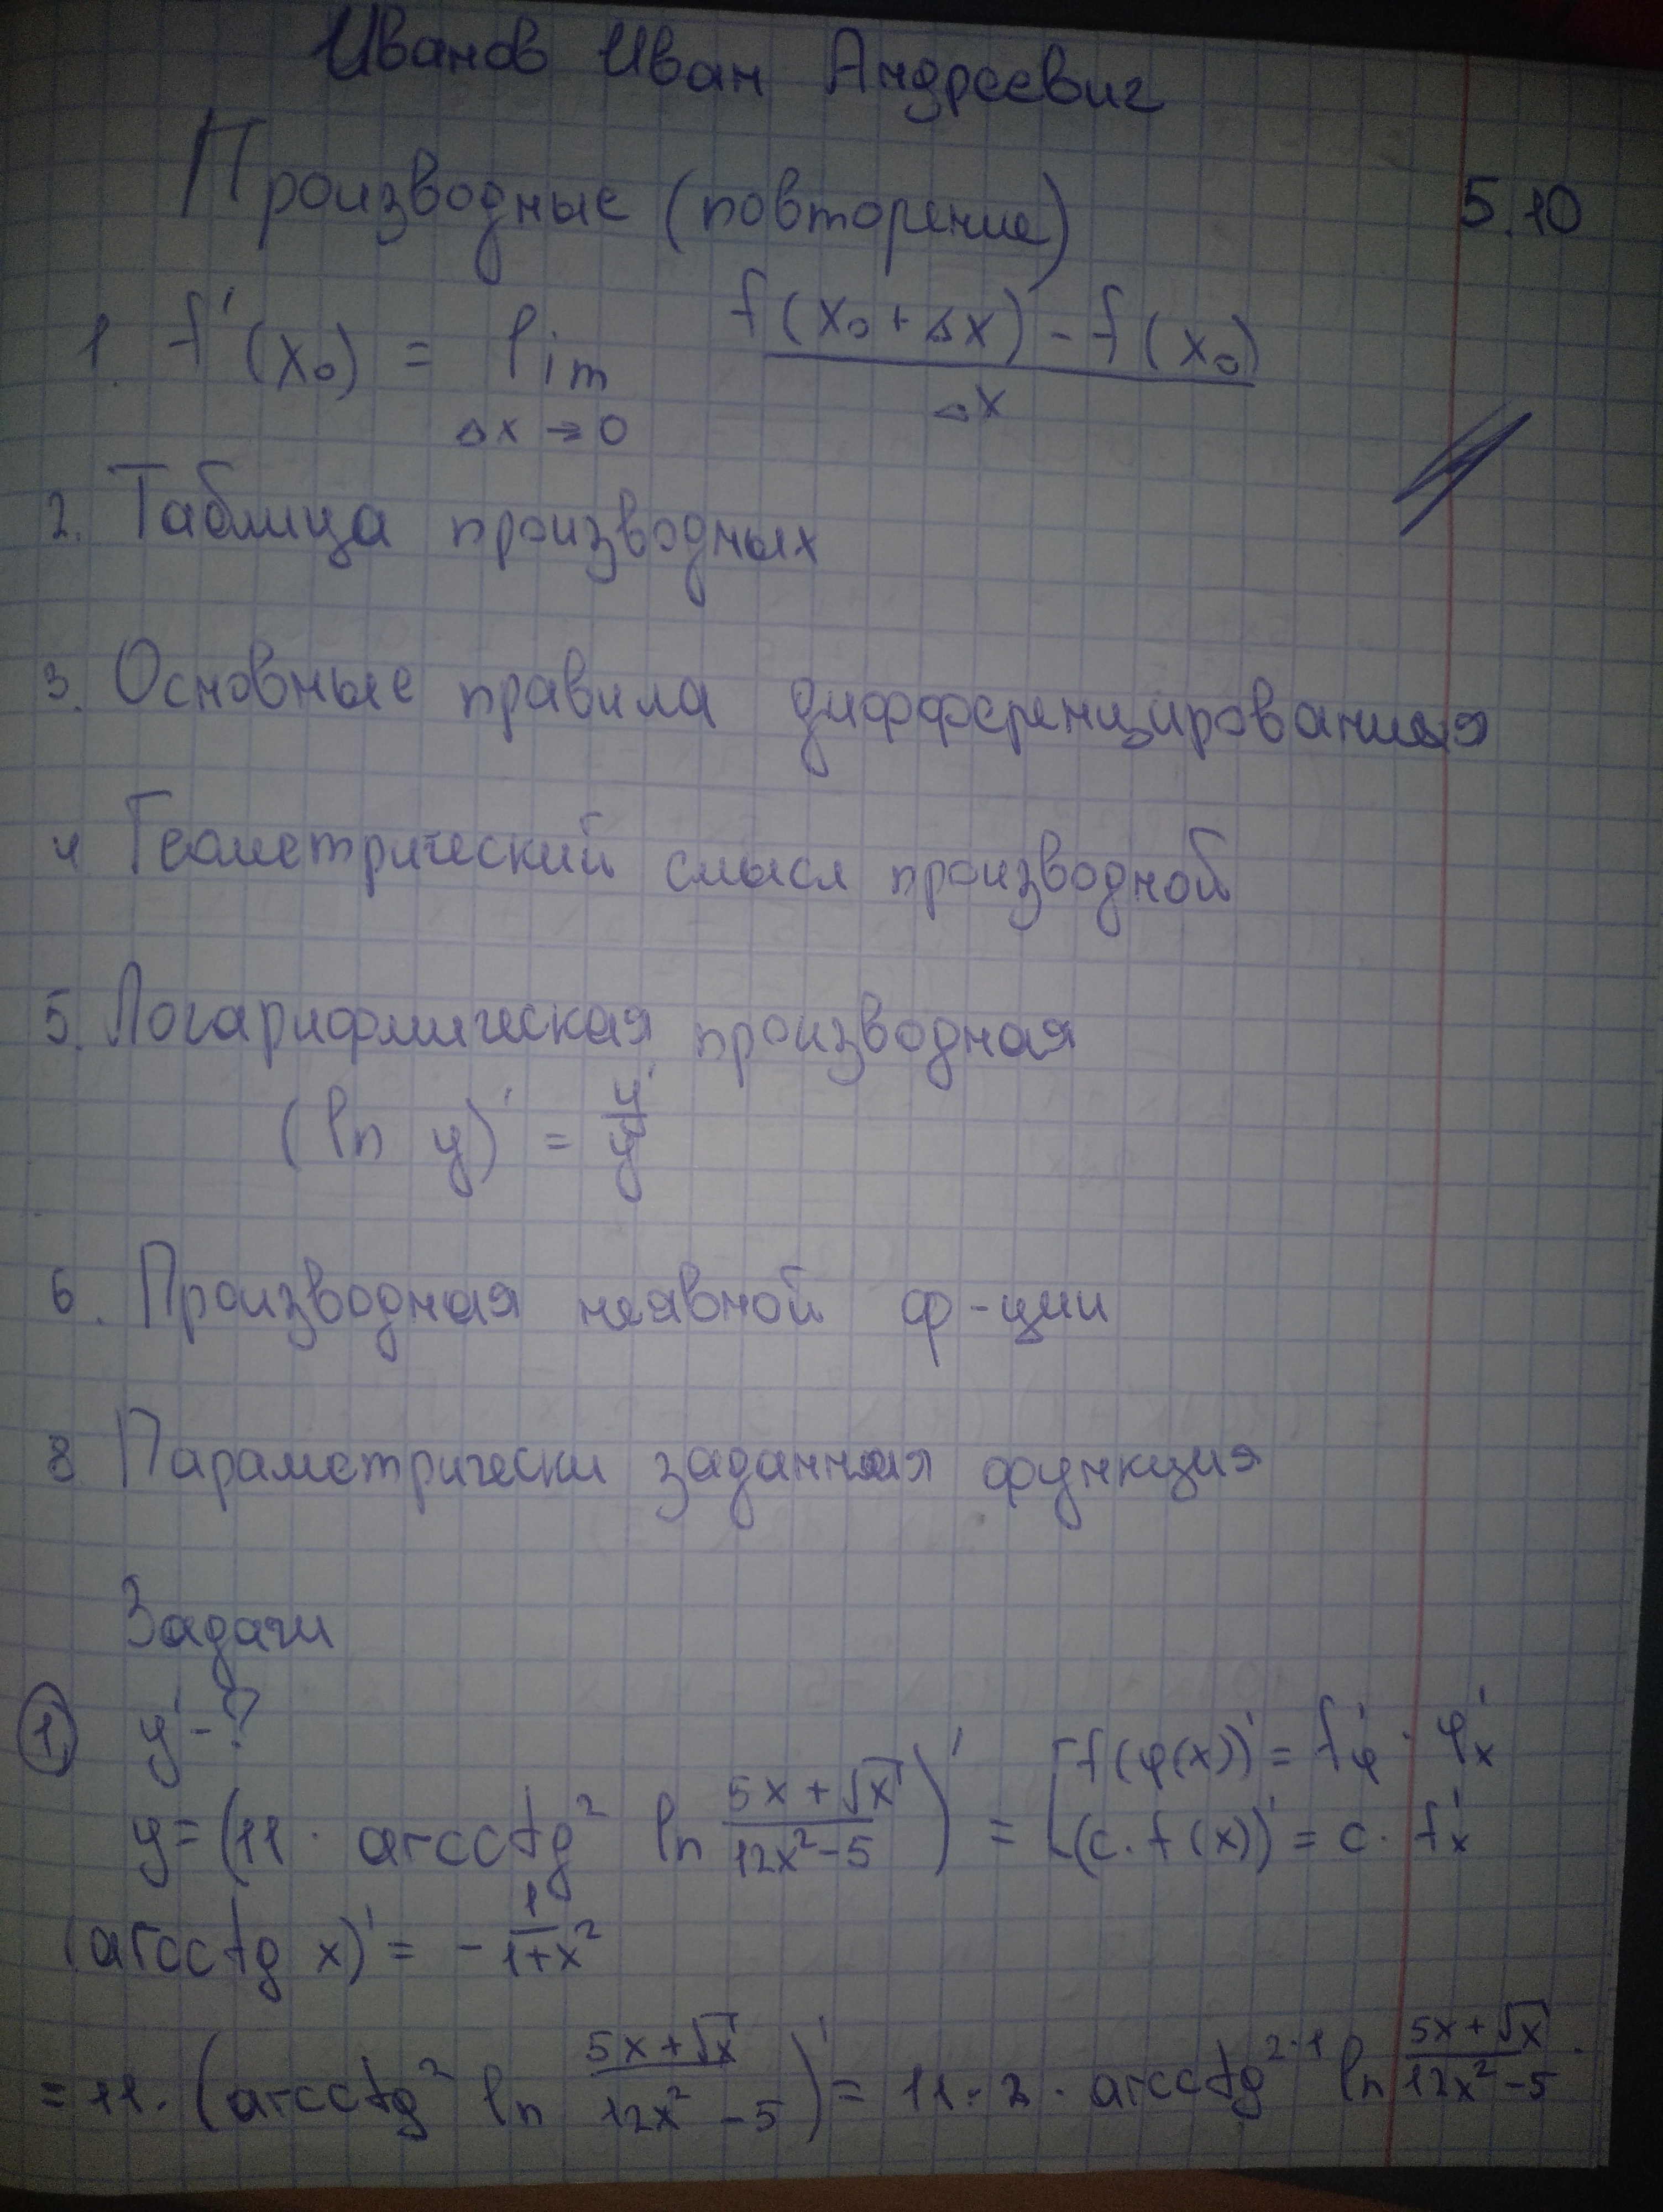 Иванов Иван Андреевич
Производные (повторение) 5.10
1. f'(x₀) = lim_{Δx→0} (f(x₀+Δx) - f(x₀))/Δx
2. Таблица производных
3. Основные правила дифференцирования
4 Геометрический смысл производной
5. Логарифмическая производная
(ln y)' = y'/y
6. Производная неявной ф-ции
8. Параметрически заданная функция
Задачи
1. y' - ?
y = (11 · arcctg² ln (5x+√x)/(12x²-5))' = [f(φ(x))' = f'φ · φ'x
(c · f(x))' = c · f'x
(arcctg x)' = - 1/(1+x²)
= 11 · (arcctg² ln (5x+√x)/(12x²-5))' = 11 · 2 · arcctg²⁻¹ ln (5x+√x)/(12x²-5) ·